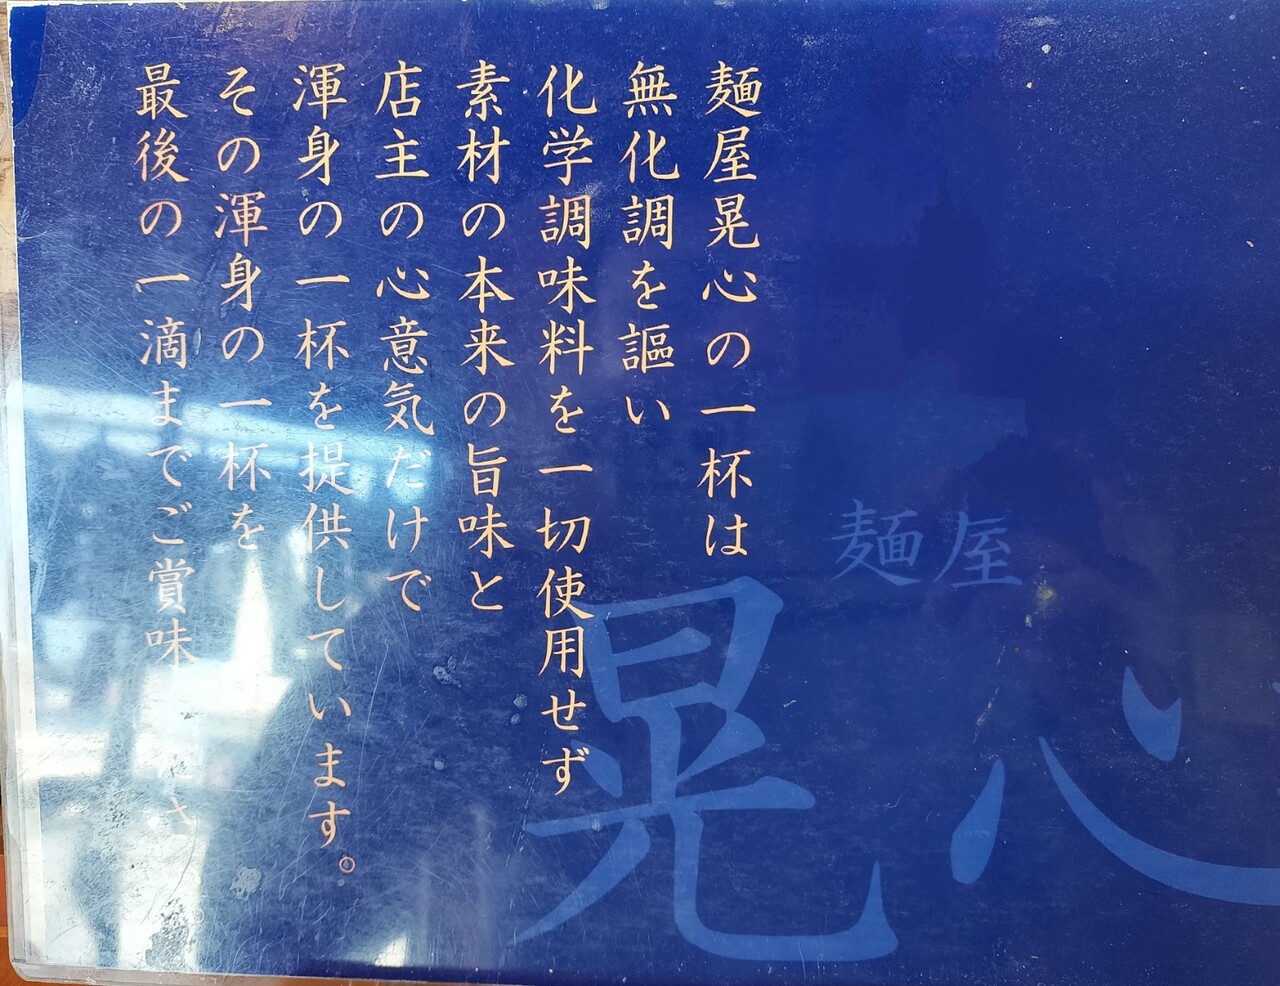 麺屋晃心の一杯は
無化調を謳い
化学調味料を一切使用せず
素材の本来の旨味と
店主の心意気だけで
渾身の一杯を提供しています。
その渾身の一杯を
最後の一滴までご賞味
麺屋
晃心